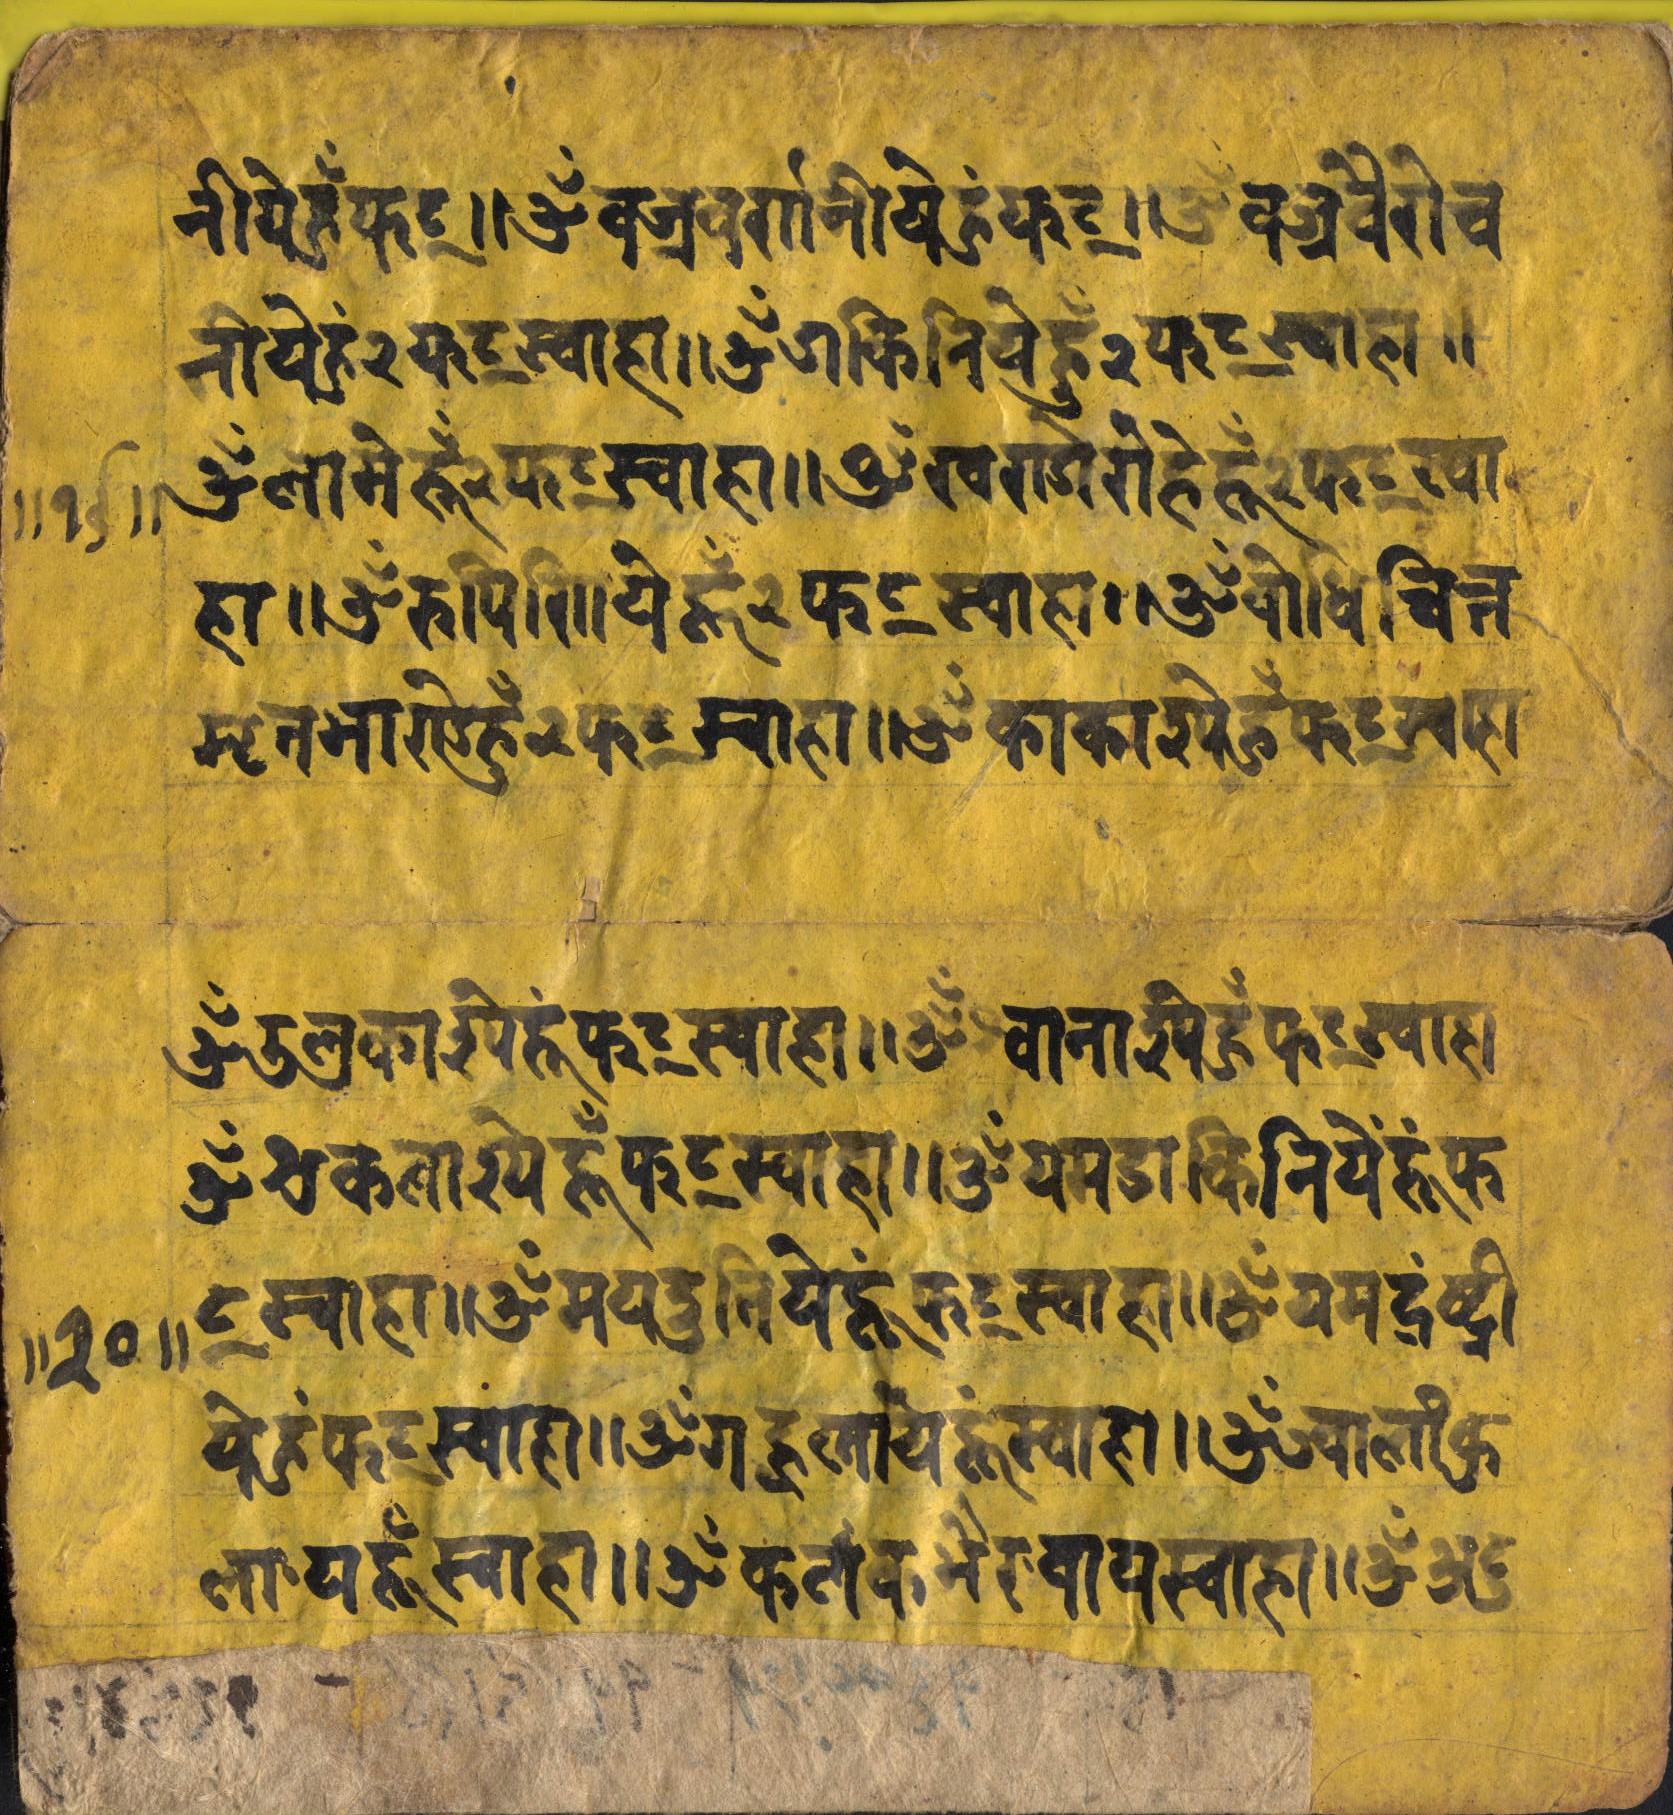 नीयेहूँफट्॥ॐवज्रवर्णानीयेहुंफट्॥ॐवज्रवैरोच
नीयेहुं२फट्स्वाहा॥ॐडाकिनियेहूँ२फट्स्वाहा॥
ॐलामेहूँ२फट्स्वाहा॥ॐखराडारोहेहूँ२फट्स्वा
॥१९॥
हा॥ॐरुपिणियेहूँ२फट्स्वाहा॥ॐवोधिचित्त
मृतभारण्डेहूँ२फट्स्वाहा॥ॐकाकाश्येहूँफट्स्वाहा
ॐउलुकाश्येहूंफट्स्वाहा॥ॐ वानाश्येहूँफट्स्वाहा
ॐशुकलाश्येहूँफट्स्वाहा॥ॐयमडाकिनियेंहूंफ
ट्स्वाहा॥ॐमयदुनियेहूंफट्स्वाहा॥ॐयमद्रंष्ट्री
॥२०॥
येहुंफट्स्वाहा॥ॐ हूंस्वाहा॥ॐ
लायहूँस्वाहा॥ॐ भैरवायस्वाहा॥ॐअट्ट